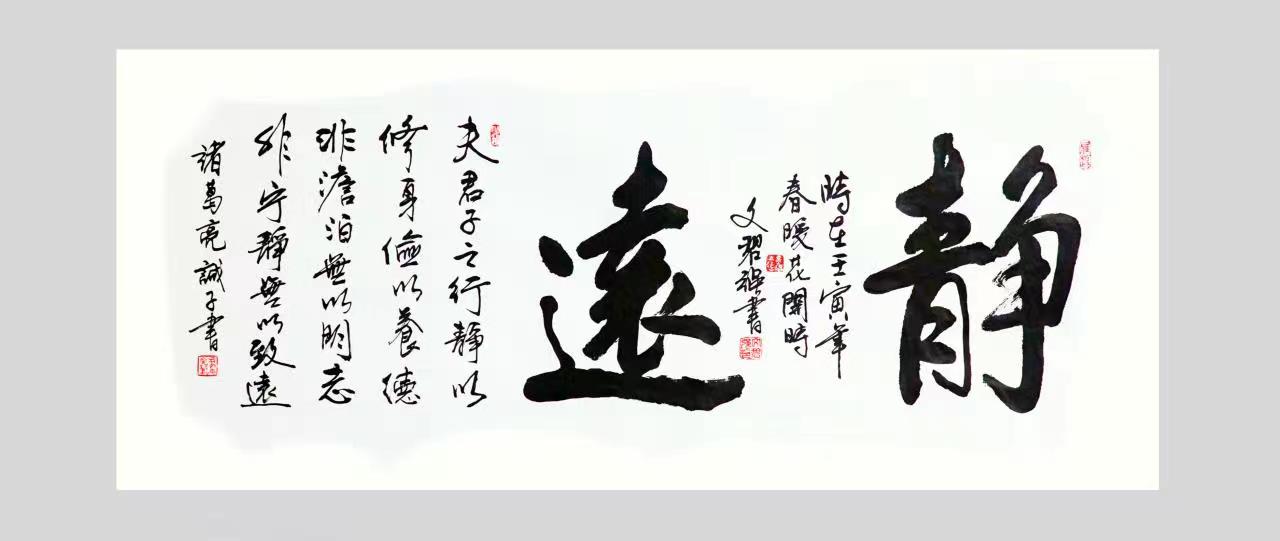 靜
時在壬寅年
春暖花開時
文翟强書
遠
夫君子之行靜以
修身儉以養德
非澹泊無以明志
非宁靜無以致遠
諸葛亮誡子書